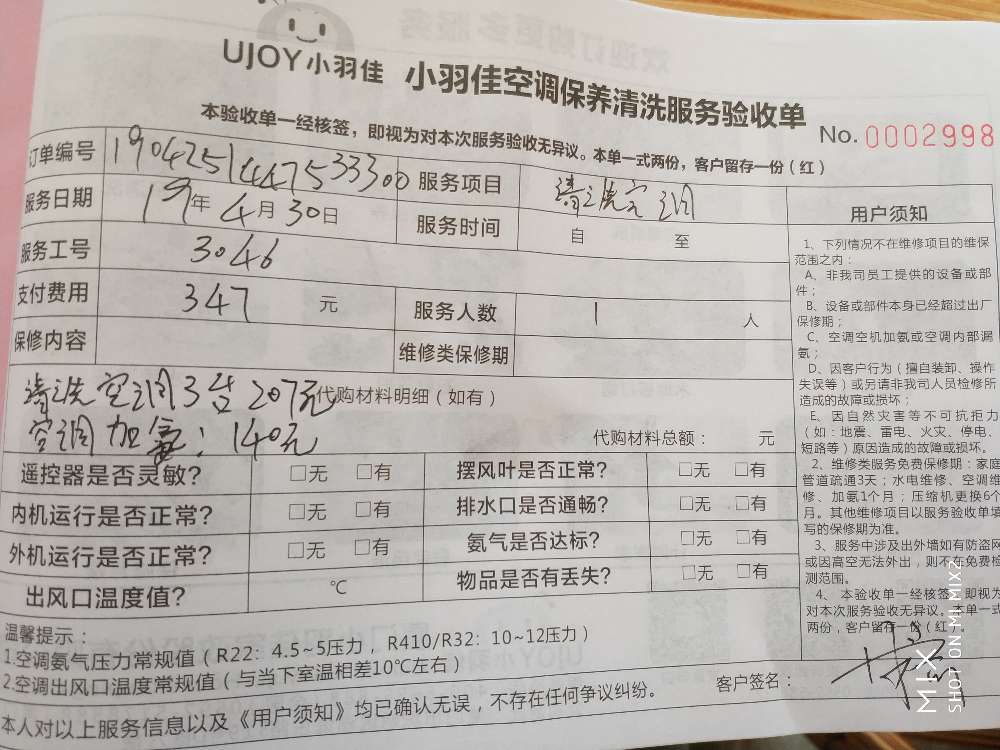 UJOY小羽佳 小羽佳空调保养清洗服务验收单
本验收单一经核签，即视为对本次服务验收无异议。本单一式两份，客户留存一份（红）
No. 0002998
订单编号 1904251447533300 服务项目 清洗空调
服务日期 19年4月30日 服务时间 自 至
服务工号 3046
支付费用 347 元 服务人数 1 人
保修内容 维修类保修期
清洗空调3台207元 代购材料明细（如有）
空调加氨：140元 代购材料总额： 元
遥控器是否灵敏？ □无 □有 摆风叶是否正常？ □无 □有
内机运行是否正常？ □无 □有 排水口是否通畅？ □无 □有
外机运行是否正常？ □无 □有 氨气是否达标？ □无 □有
出风口温度值？ ℃ 物品是否有丢失？ □无 □有
温馨提示：
1.空调氨气压力常规值（R22：4.5~5压力，R410/R32：10~12压力）
2.空调出风口温度常规值（与当下室温相差10℃左右）
客户签名：
本人对以上服务信息以及《用户须知》均已确认无误，不存在任何争议纠纷。
用户须知
1、下列情况不在维修项目的维保
范围之内：
A、非我司员工提供的设备或部
件；
B、设备或部件本身已经超过出厂
保修期；
C、空调空机加氨或空调内部漏
氨；
D、因客户行为（擅自装卸、操作
失误等）或另请非我司人员检修所
造成的故障或损坏；
E、因自然灾害等不可抗拒力
（如：地震、雷电、火灾、停电、
短路等）原因造成的故障或损坏。
2、维修类服务免费保修期：家庭
管道疏通3天；水电维修、空调维
修、加氨1个月；压缩机更换6个
月。其他维修项目以服务验收单填
写的保修期为准。
3、服务中涉及出外墙如有防盗网
或因高空无法外出，则不在免费检
测范围。
4、本验收单一经核签，即视为
对本次服务验收无异议。本单一式
两份，客户留存一份（红）。
SHOT ON MI MIX2
MIX